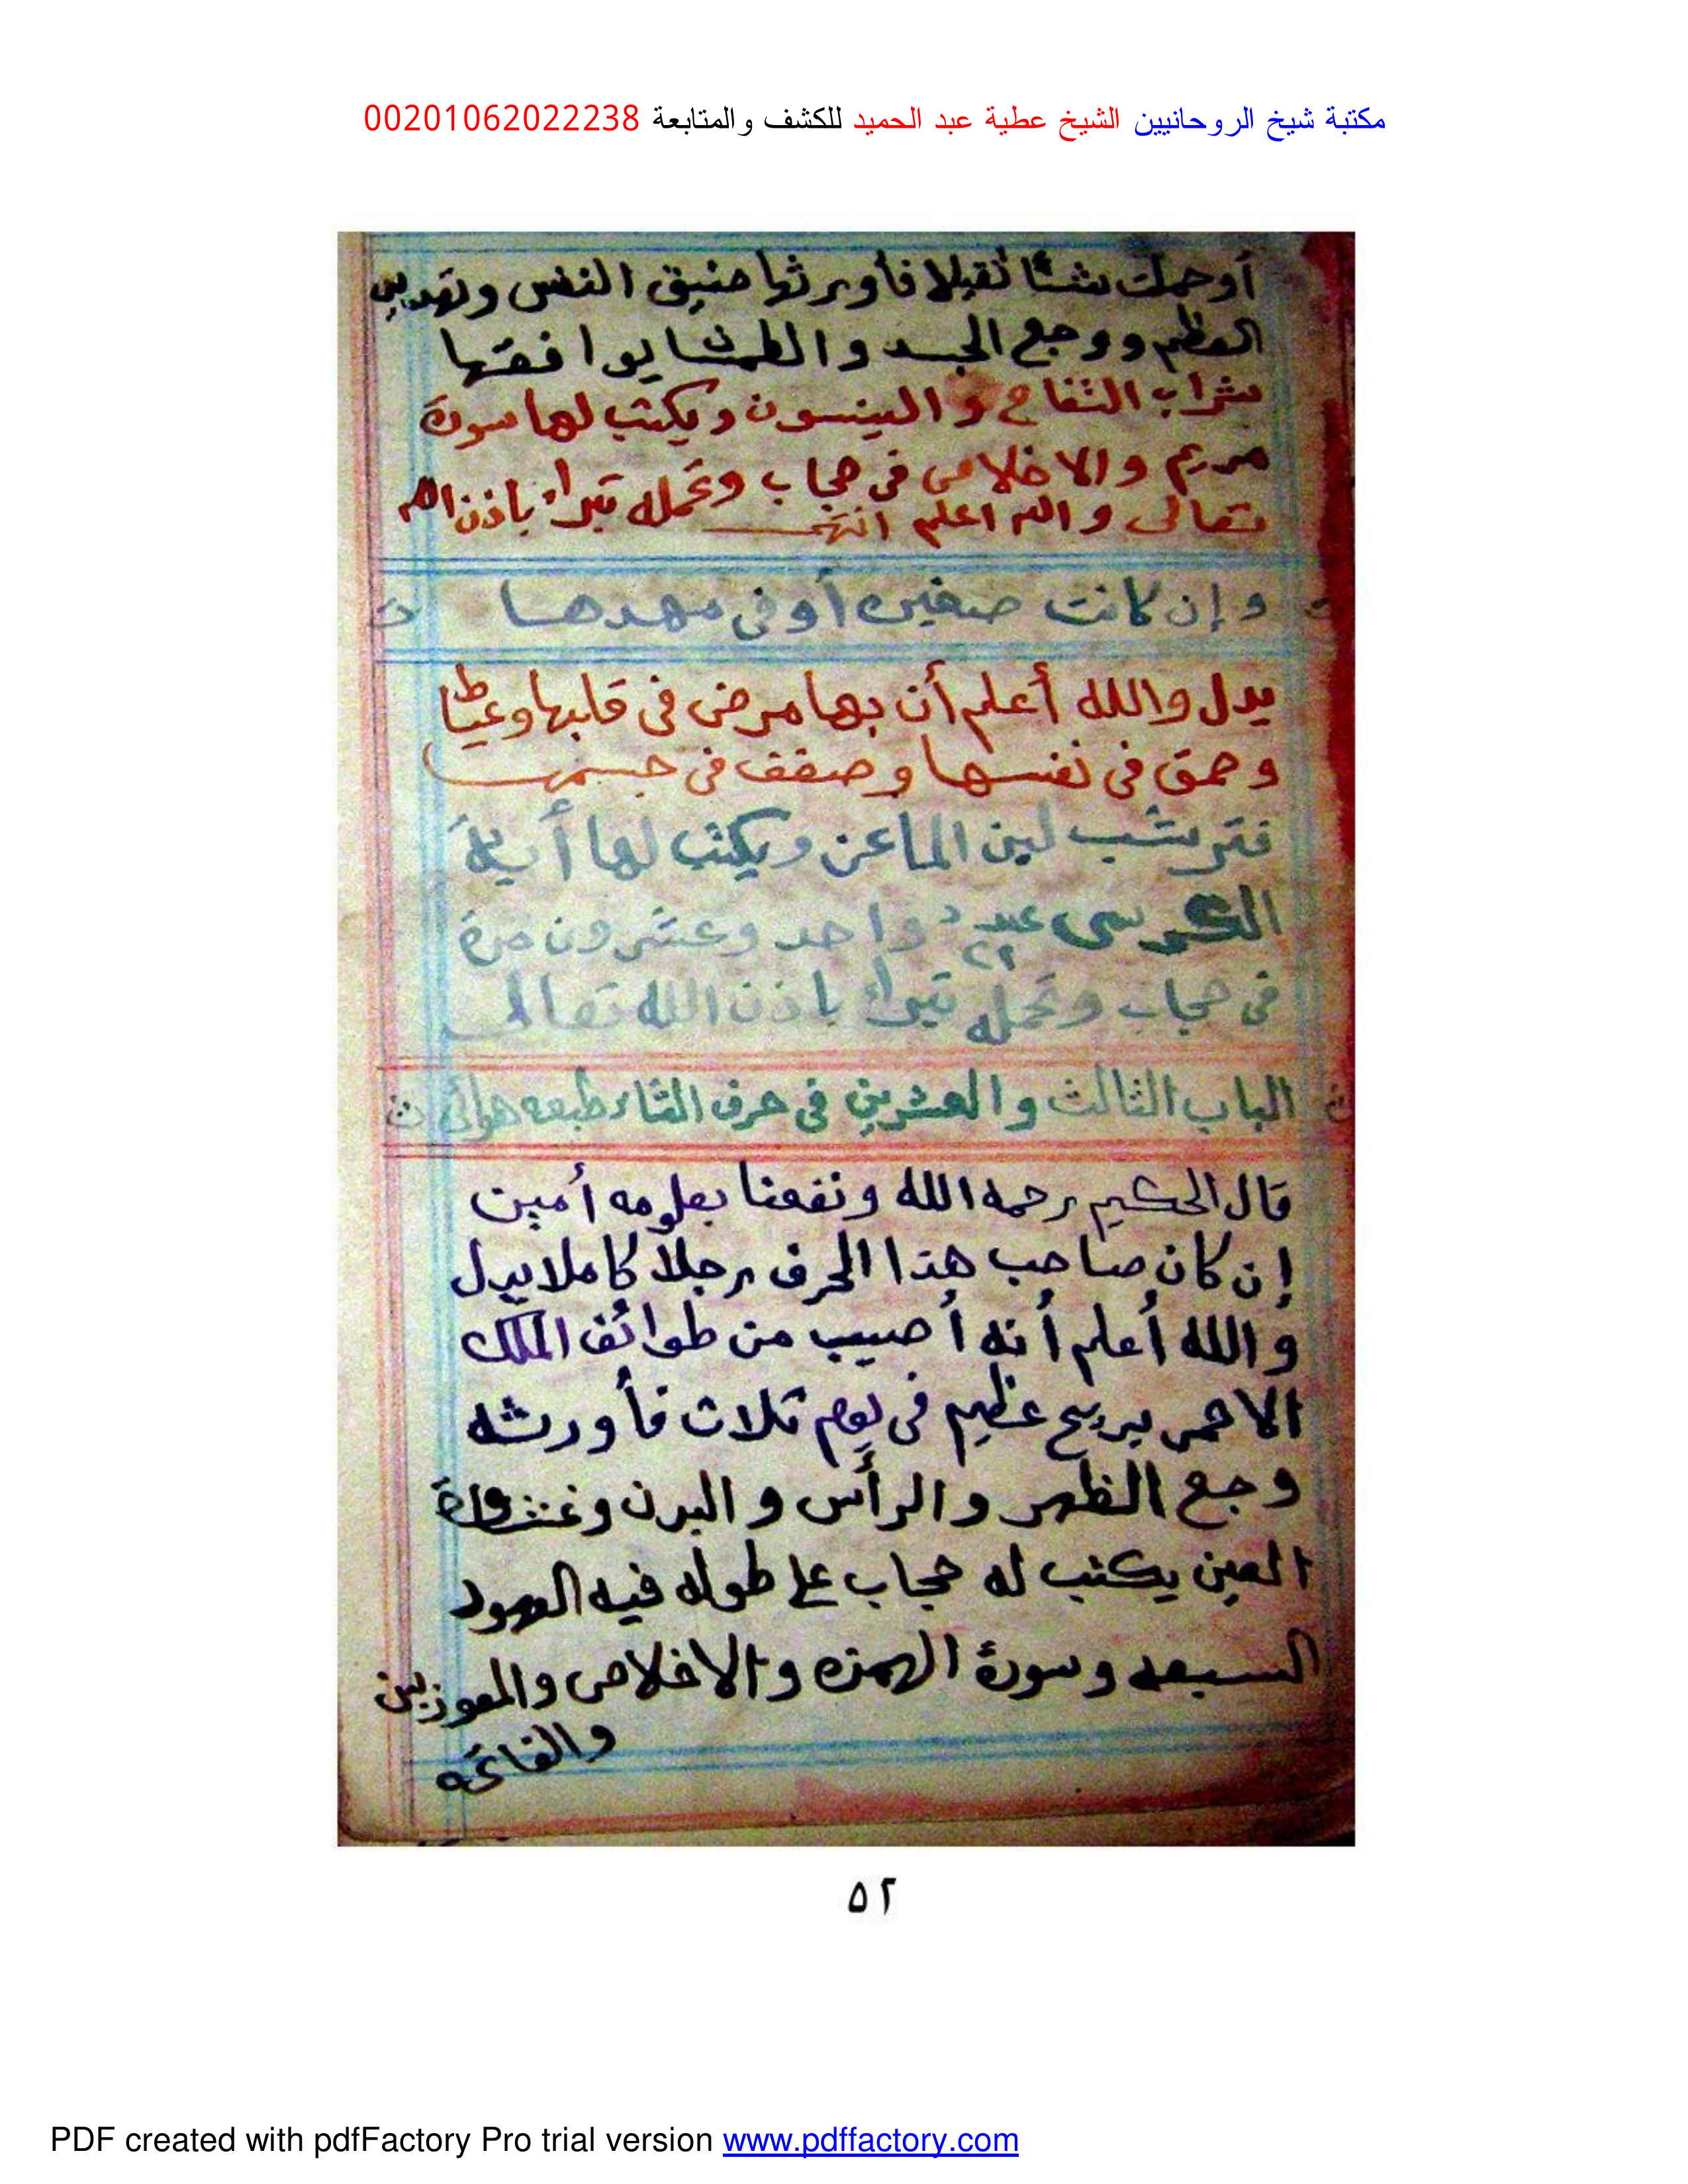 مكتبة شيخ الروحانيين الشيخ عطية عبد الحميد للكشف والمتابعة 00201062022238
أو حملت شئا ثقيلا فأورثها ضيق النفس وتهديس
العظم ووجع الجسد والطمث يوافقها
شراب التفاح و الينسون ويكتب لها سورة
مريم والاخلاص فى حجاب وتحمله تبراء باذن الله
تعالى والله اعلم انتهى
وإن كانت صغيره أو فى مهدها
يدل والله أعلم أن بها مرض فى قلبها وعياط
وحمق فى نفسها وضعف فى جسمها
فتر بشب لبن الماعن ويكتب لها أية
الكرسى عدد واحد وعشرون مرة
٢١
فى حجاب وتحمله تبراء باذن الله تعالى
الباب الثالث والعشرين فى حرف الثاء طبعه هوائى ث
قال الحكيم رحمه الله ونفعنا بعلومه أمين
إن كان صاحب هذا الحرف رجلا كاملا يدل
والله أعلم أنه أصيب من طوائف الملك
الاحمر بريح عظيم فى يوم ثلاث فأورثه
وجع الظهر والرأس والبدن وغشاوة
العين يكتب له حجاب على طوله فيه العهود
السبعه وسورة الهمزه والاخلاص والمعوزتين
والفاتحه
٥٢
PDF created with pdfFactory Pro trial version www.pdffactory.com